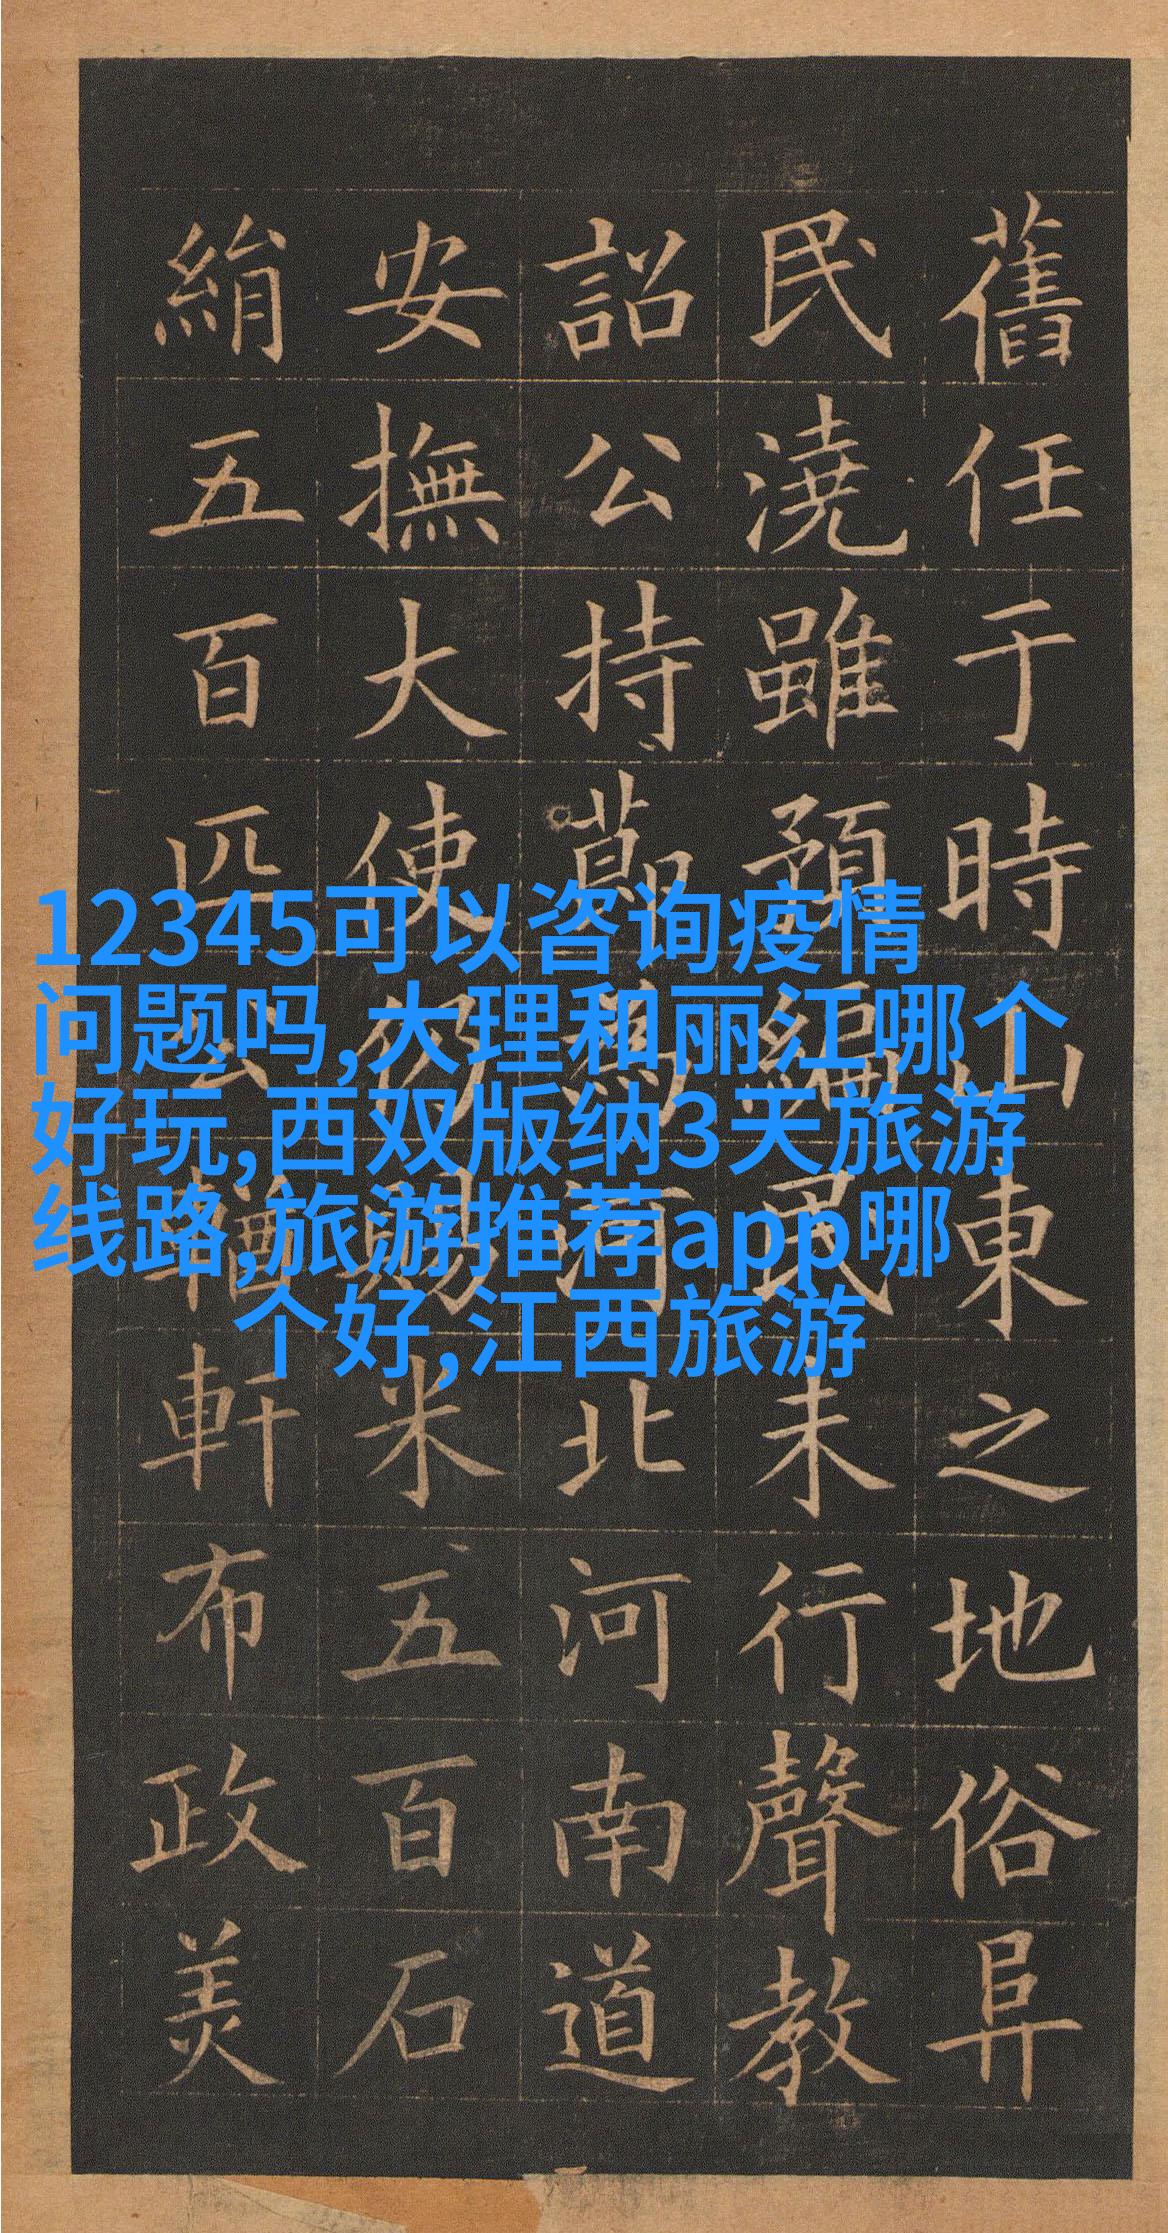 舊任于時山東之地俗阜
民澆雖預編民未行聲教
詔公持節為河北河南道
安撫大使仍賜米五百石
絹五百匹公輶軒布政美
12345可以咨询疫情
问题吗,大理和丽江哪个
好玩,西双版纳3天旅游
线路,旅游推荐app哪
个好,江西旅游